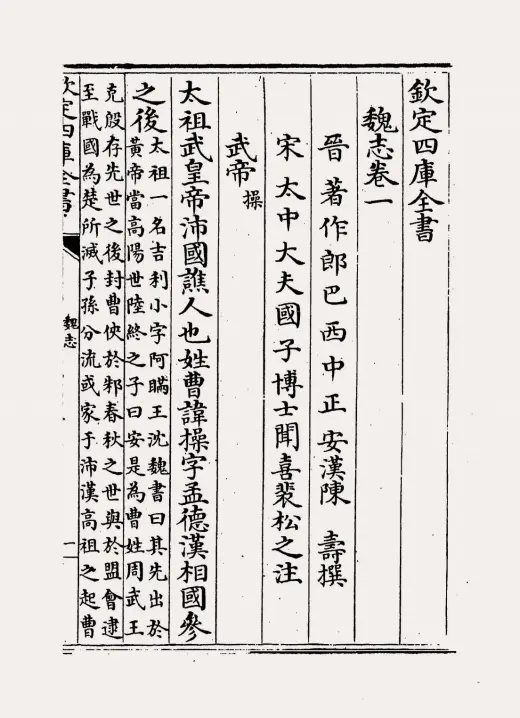 欽定四庫全書
魏志卷一
晉著作郎巴西中正安漢陳壽撰
宋太中大夫國子博士聞喜裴松之注
武帝操
太祖武皇帝沛國譙人也姓曹諱操字孟德漢相國參
之後
太祖一名吉利小字阿瞞王沈魏書曰其先出於
黃帝當高陽世陸終之子曰安是為曹姓周武王
克殷存先世之後封曹俠於邾春秋之世與於盟會逮
至戰國為楚所滅子孫分流或家于沛漢高祖之起曹
欽定四庫全書
魏志
一